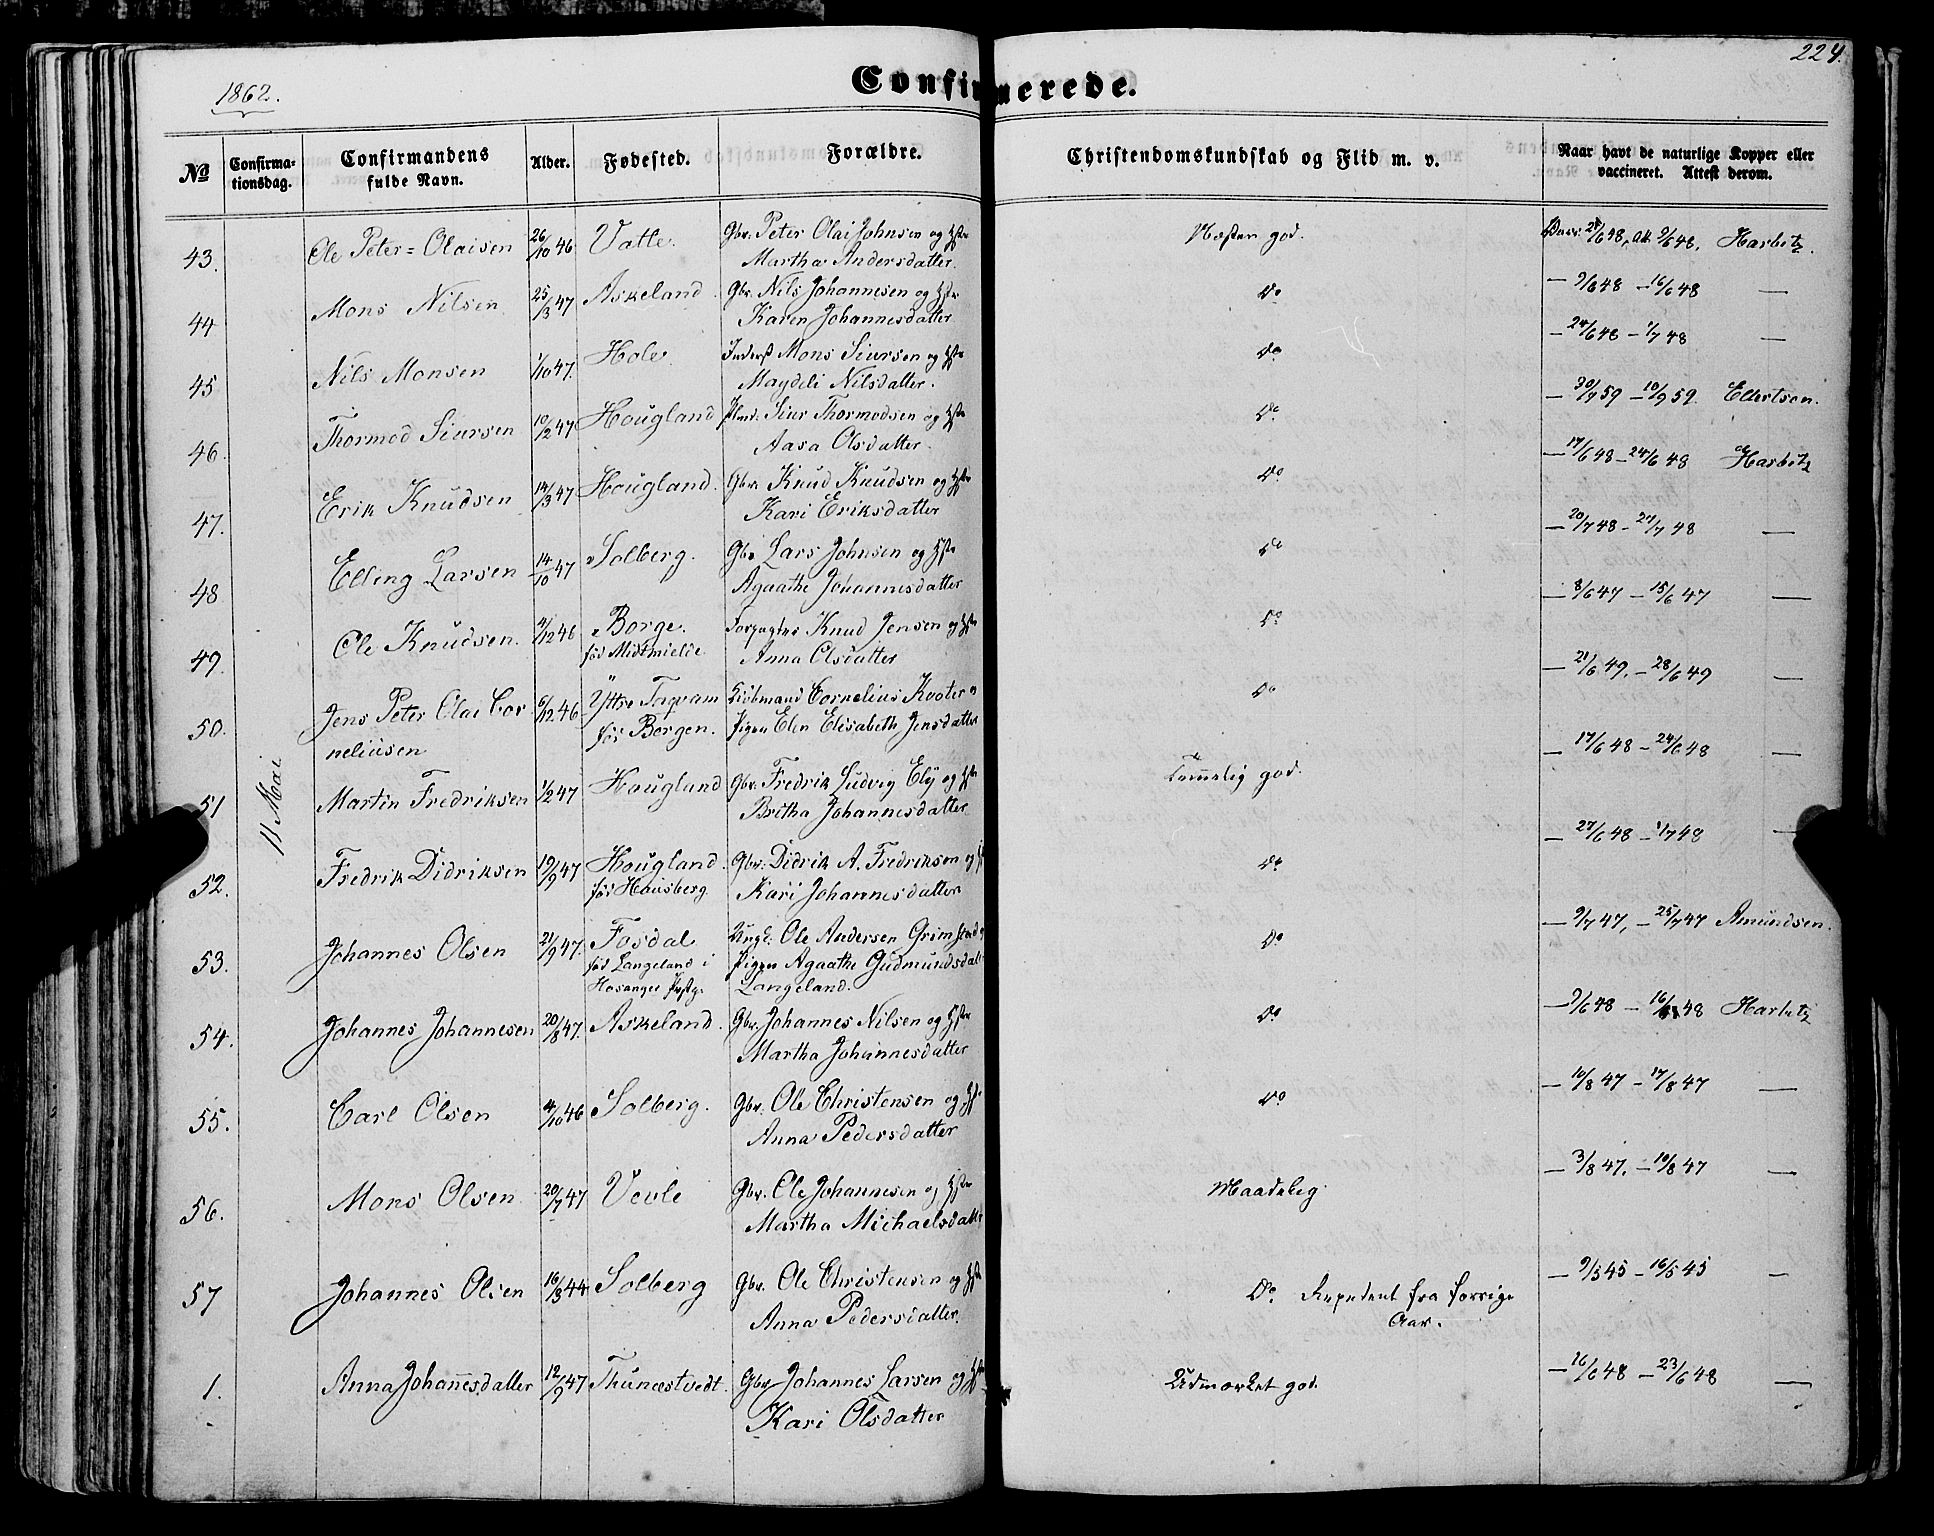 224.
1862.
Confirmerede.
No Confirmationsdag. Confirmandens fulde Navn. Alder. Fødested. Forældre. Christendomskundskab og Flid m. v. Naar havt de naturlige Kopper eller vaccineret. Attest derom.
11 Mai
43. Ole Peter=Olaisen 26/10 46 Vatle. Gbr. Peter Olai Johnsen og Hstr Næsten god. 9/6 48, Harbitz.
Martha Andersdatter.
44 Mons Nilsen 25/3 47 Askeland. Gbr. Nils Johannesen og Hstr Do — 9/6 48 — 16/6 48 —
Karen Johannesdatter
45 Nils Monsen 1/10 47. Hole. Inderst Mons Siursen og Hstr Do — 24/6 48 — 1/7 48 —
Magdeli Nilsdatter.
46. Thormod Siursen 10/2 47 Hougland Siur Thormodsen og Hstr Do — 10/9 59 Ellertsen.
Aasa Olsdatter.
47. Erik Knudsen 14/3 47 Hougland. Gbr. Knud Knudsen og Hstr Do — 17/6 48 — 24/6 48 Harbitz
Kari Eriksdatter
48 Elling Larsen 14/10 47 Solberg. Gbr Lars Johnsen og Hstr Do — 20/7 48 — 27/7 48 —
Agaathe Johannesdatter
49. Ole Knudsen. 4/12 46 Borge. Forpagter Knud Jensen og Hstr Do — 8/6 47 — 15/6 47 —
før Midtmielde Anna Olsdatter
50. Jens Peter Olai Cor 6/12 46 Yttre Toqvam Cornelius Koster og Do — 21/6 49. — 28/6 49 —
neliusen før Bergen. Pigen Elen Elisabeth Jensdatter
51 Martin Fredriksen 1/2 47 Hougland Gbr. Fredrik Ludvig Ely og Hstr Temmelig god. — 17/6 48 — 24/6 48 —
Britha Johannesdatter
52. Fredrik Didriksen 19/9 47 Hougland. Gbr. Didrik A. Fredriksen og Do — 27/6 48 — 1/7 48 —
før Housberg Kari Johannesdatter
53. Johannes Olsen 21/9 47. Fosdal Ungk. Ole Andersen Grimstad Do — 9/7 47, — 25/7 47 Amundsen.
før Langeland i Pigen Agaathe Gudmundsdatt
Hosanger Prstg. Langeland.
54. Johannes Johannesen 20/8 47. Askeland. Gbr. Johannes Nilsen og Hstr Do — 9/6 48 — 16/6 48 Harbitz
Martha Johannesdatter
55. Carl Olsen 4/10 46 Solberg. Gbr. Ole Christensen og Hstr Do — 10/8 47 — 17/8 47 —
Anna Pedersdatter
56. Mons Olsen 20/7 47 Vevle Gbr. Ole Johannesen og Hstr Maadelig — 3/8 47. — 10/8 47 —
Martha Michaelsdatt
57 Johannes Olsen 16/3 44 Solberg Gbr. Ole Christensen og Hstr Do. Repetent fra forrige — 9/5 45 — 16/5 45 —
Anna Pedersdatter. Aar.
1. Anna Johanesdatter 12/9 47 Thunæstvedt. Gbr Johannes Larsen og Hstr Udmærket god. — 16/6 48 — 23/6 48 —
Kari Olsdatter